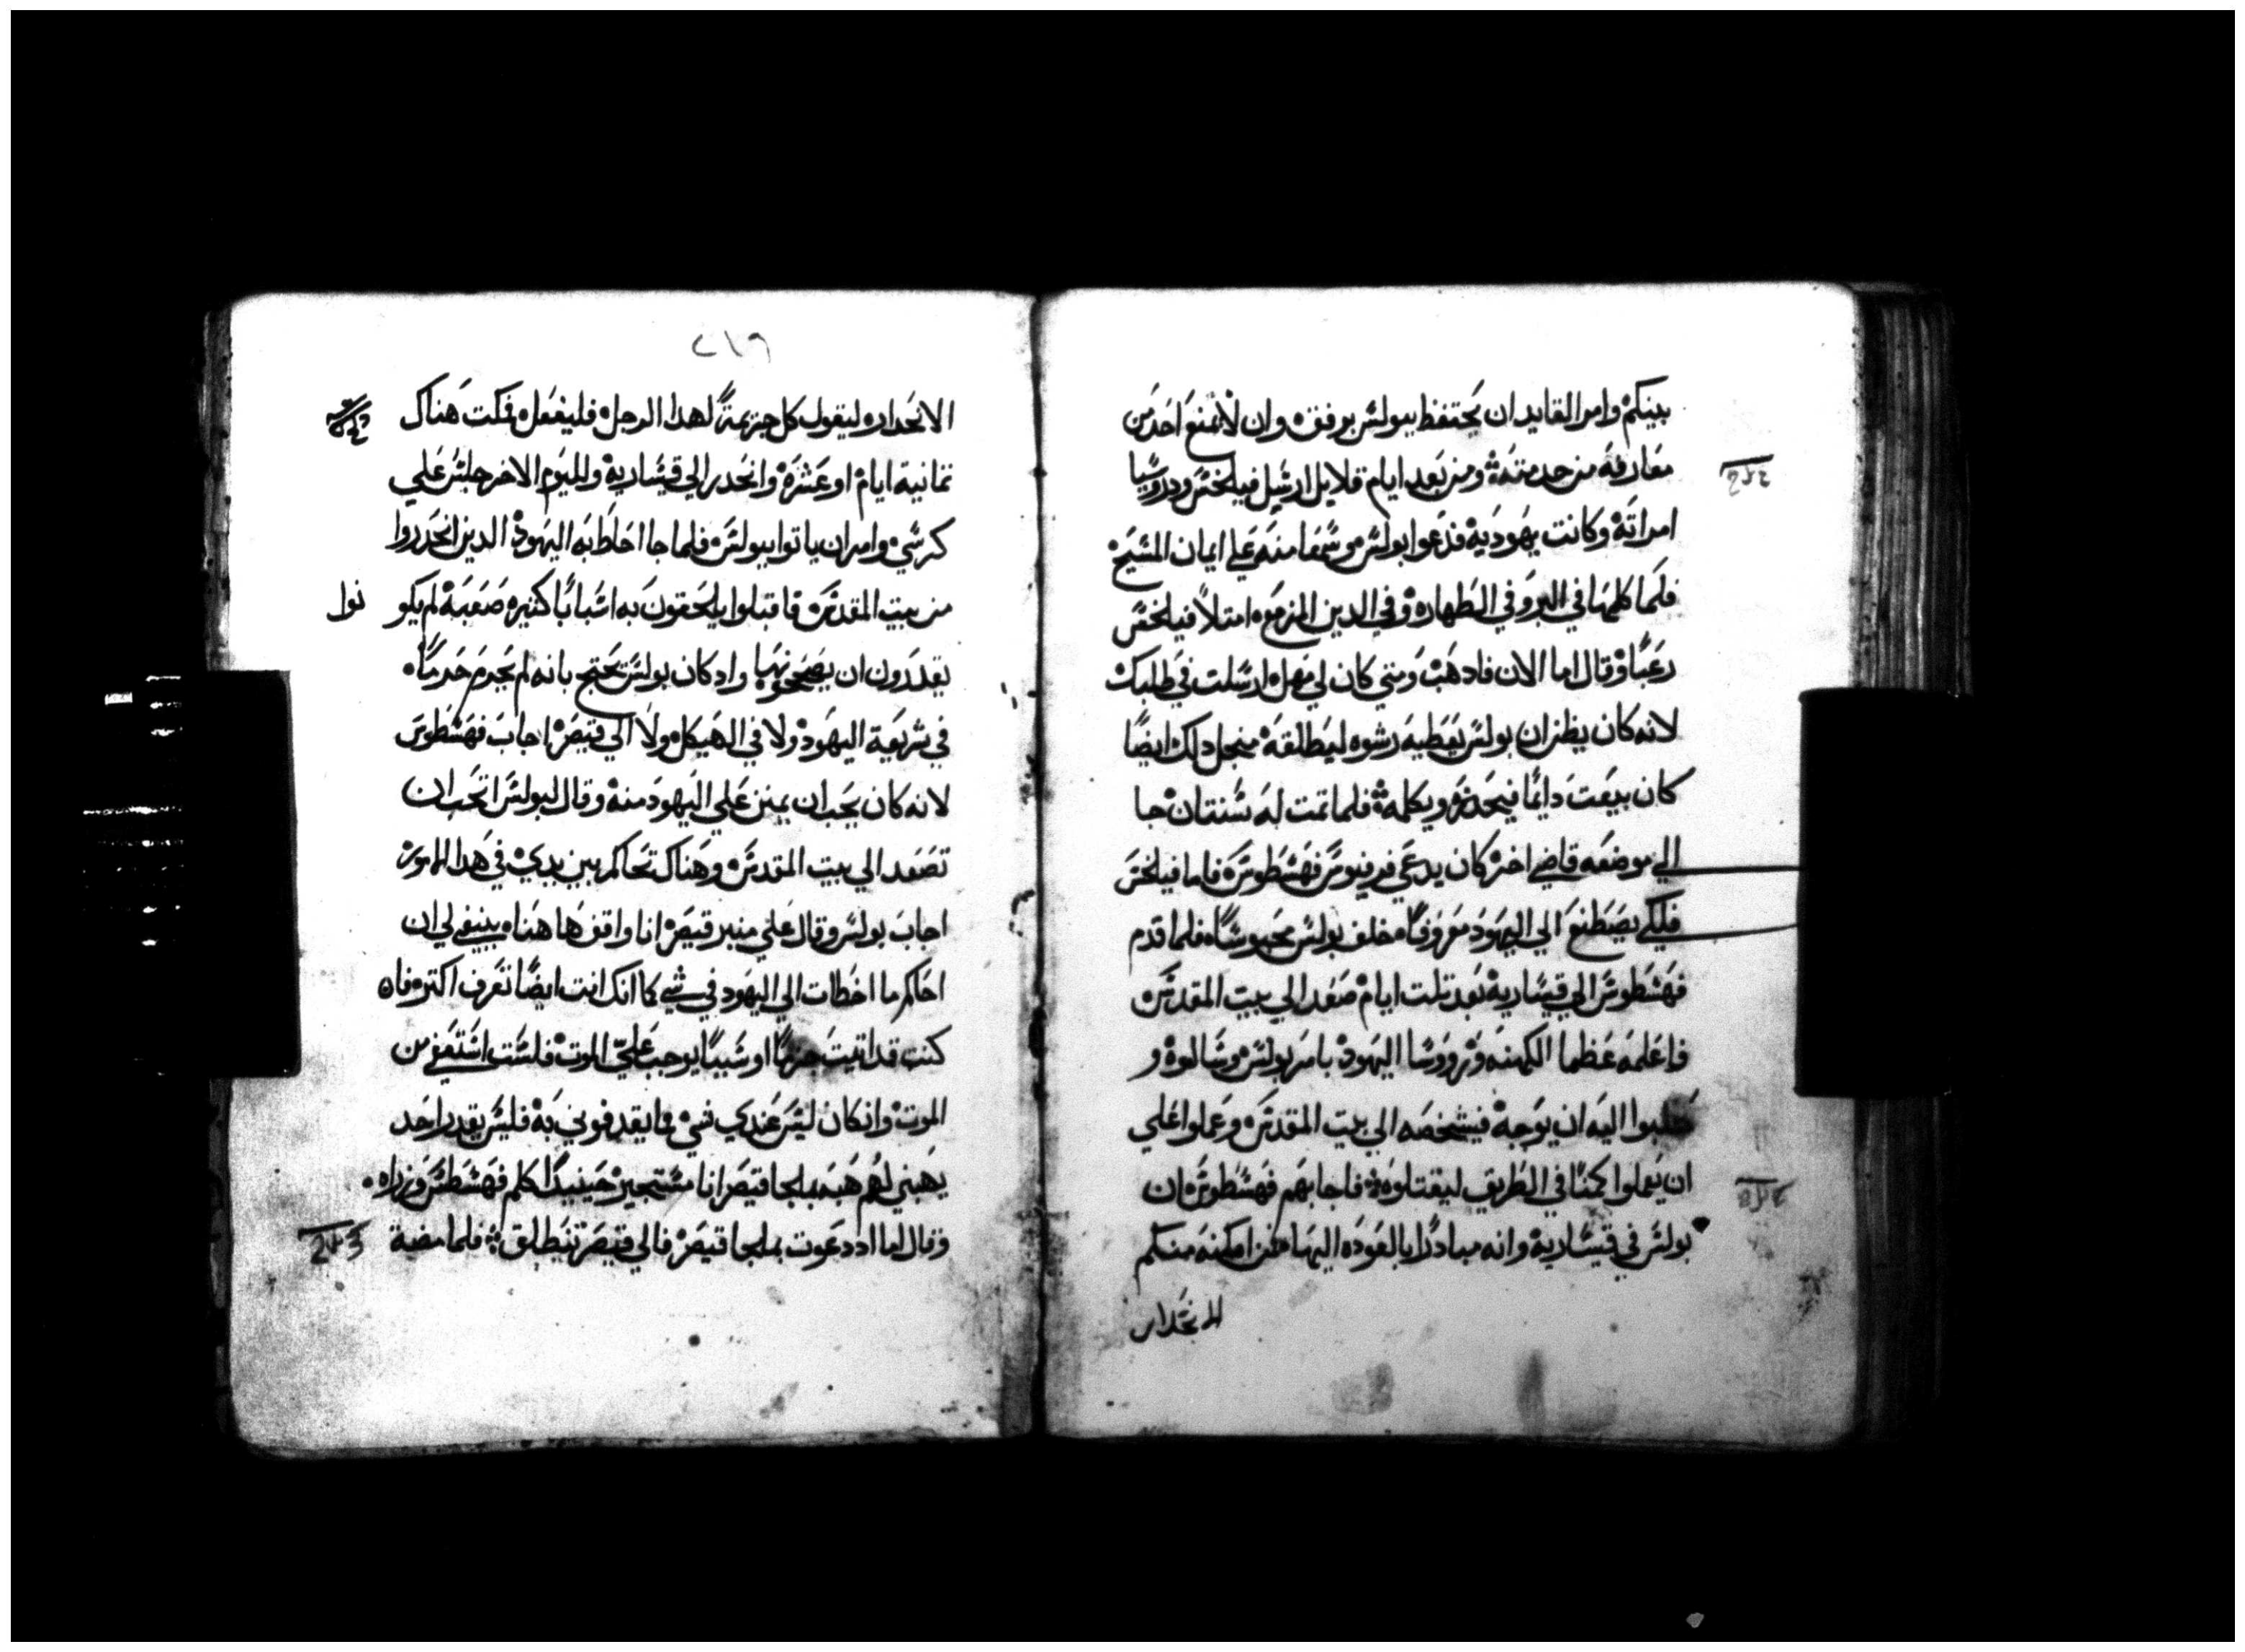 بينكم وامر القايد ان يحتفظ ببولس برفق وان لا يمنع احد من
معارفه من خدمته ومن بعد ايام قلايل ارسل فيلخس ودروسيا
امراته وكانت يهوديه فدعوا بولس وسمعا منه علي ايمان المسيح
فلما كلمها في البر وفي الطهاره وفي الدين المزمع امتلا فيلخس
رعبا وقال اما الان فادهب ومتي كان لي مهل ارسلت في طلبك
لانه كان يظن ان بولس يعطيه رشوه ليطلقه منجل دلك ايضا
كان يبعت دايما فيحضره ويكلمه فلما تمت له سنتان جا
الي موضعه قاضي اخر كان يدعي فرفيوس فهسطوس فاما فيلخس
فلكي يصطنع الي اليهود معروفا مخلف بولس محبوسا فلما قدم
فهسطوس الي قيساريه بعد تلت ايام صعد الي بيت المقدس
فاعلمه عظما الكهنه وروسا اليهود بامر بولس وسالوه و
طلبوا اليه ان يوجه فيشخصه الي بيت المقدس وعملوا علي
ان يعملوا كمنا في الطريق ليقتلوه فاجابهم فهسطوس ان
بولس في قيساريه وانه مبادرا بالعوده اليها فمن امكنه منكم
الانحدار
٢١٩
الانحدار ليقول كل جريمة لهدا الرجل فليفعل فمكت هناك
تمانية ايام او عشره وانحدر الي قيساريه ولليوم الاخر جلس علي
كرسي وامر ان ياتوا ببولس فلما جا احاط به اليهود الدين انحدروا
من بيت المقدس فاقبلوا يلحقون به اسبابا كتيره صعبه لم يكو نوا
يقدرون ان يصححونها واد كان بولس يحتج بانه لم يجرم جرما
في شريعة اليهود ولا في الهيكل ولا الي قيصر اجاب فهسطوس
لانه كان يحب ان يمنن علي اليهود منة وقال لبولس اتحب ان
تصعد الي بيت المقدس وهناك تحاكم بين يدي في هدا الامور
اجاب بولس وقال علي منبر قيصر انا واقف هاهنا ينبغي لي ان
احاكم ما اخطات الي اليهود في شي كما انك انت ايضا تعرف اكتر فان
كنت قد اتيت جرما او شييا يوجب علي الموت فلست استعفي من
الموت وان كان ليس عندي شي مما يقدفوني به فليس يقدر احد
يهبني لهم هبه بملجا قيصر انا مستجير حينيدا كلم فهسطس وزراه
وقال اما اد دعوت بملجا قيصر فالي قيصر تنطلق فلما مضية